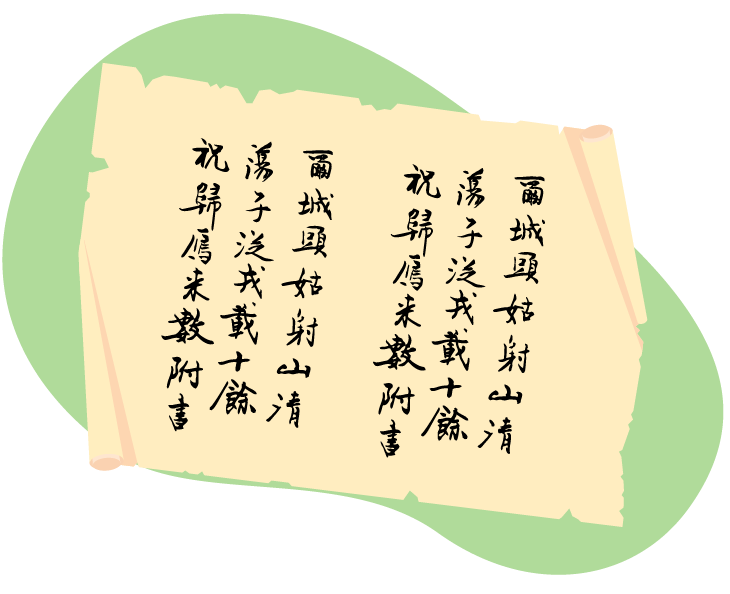 爾城頭姑射山清
蕩子從戎載十餘
祝歸鴈來數附書
爾城頭姑射山清
蕩子從戎載十餘
祝歸鴈來數附書